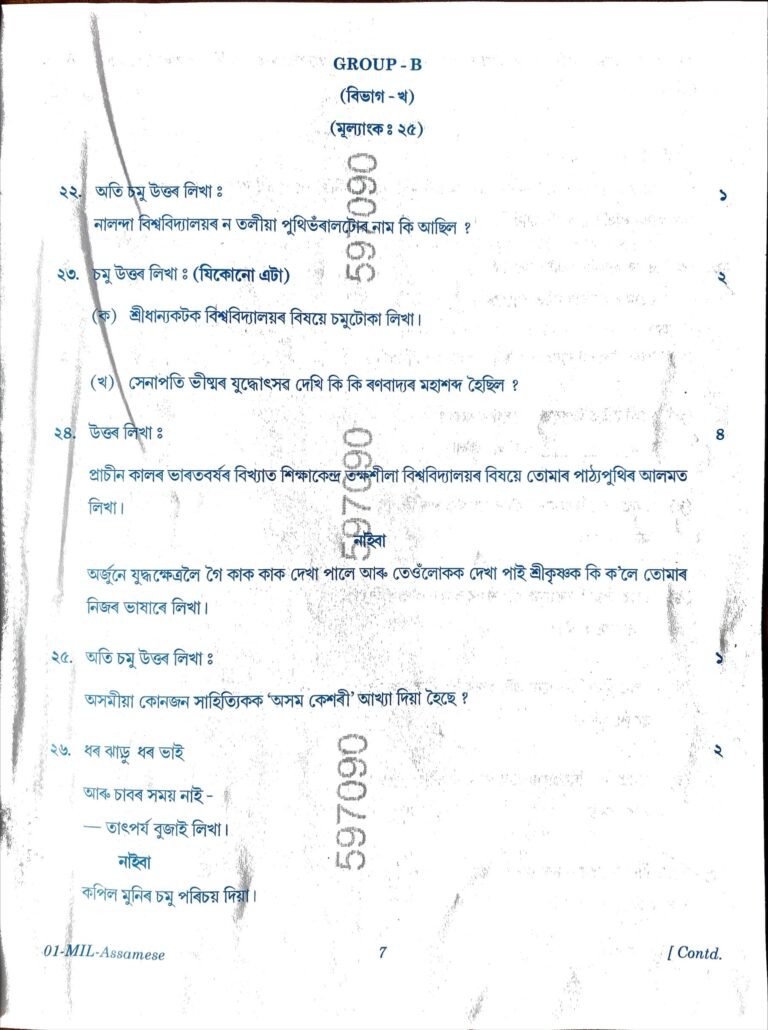 GROUP - B
(বিভাগ - খ)
(মূল্যাংক ঃ ২৫)
২২. অতি চমু উত্তৰ লিখা ঃ ১
নালন্দা বিশ্ববিদ্যালয়ৰ ন তলীয়া পুথিভঁৰালটোৰ নাম কি আছিল ?
২৩. চমু উত্তৰ লিখা ঃ (যিকোনো এটা) ২
(ক) শ্ৰীধান্যকটক বিশ্ববিদ্যালয়ৰ বিষয়ে চমুটোকা লিখা।
(খ) সেনাপতি ভীষ্মৰ যুদ্ধোৎসৱ দেখি কি কি ৰণবাদ্যৰ মহাশব্দ হৈছিল ?
২৪. উত্তৰ লিখা ঃ ৪
প্ৰাচীন কালৰ ভাৰতবৰ্ষৰ বিখ্যাত শিক্ষাকেন্দ্ৰ তক্ষশীলা বিশ্ববিদ্যালয়ৰ বিষয়ে তোমাৰ পাঠ্যপুথিৰ আলমত
লিখা।
নাইবা
অৰ্জুনে যুদ্ধক্ষেত্ৰলৈ গৈ কাক কাক দেখা পালে আৰু তেওঁলোকক দেখা পাই শ্ৰীকৃষ্ণক কি ক'লে তোমাৰ
নিজৰ ভাষাৰে লিখা।
২৫. অতি চমু উত্তৰ লিখা ঃ ১
অসমীয়া কোনজন সাহিত্যিকক ‘অসম কেশৰী’ আখ্যা দিয়া হৈছে ?
২৬. ধৰ ঝাড়ু ধৰ ভাই ২
আৰু চাবৰ সময় নাই -
— তাৎপৰ্য বুজাই লিখা।
নাইবা
কপিল মুনিৰ চমু পৰিচয় দিয়া।
01-MIL-Assamese 7 [ Contd.
597090
597090
597090